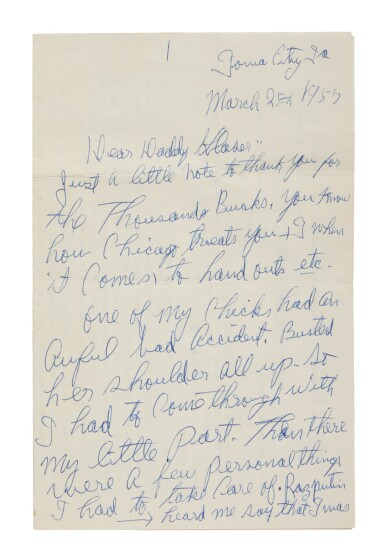 1
Iowa City Ia
March 25th 1957
Dear Daddy Glaser"
Just a little note to thank you for
the Thousand Bucks, you know
how Chicago, treats you + I when
it comes to hand outs etc.
one of my Chicks had an
awful bad accident. Busted
her shoulder all up. So
I had to come through with
my little part. Than there
were a few personal things
I had to take care of. Rasputin
heard me say that I was